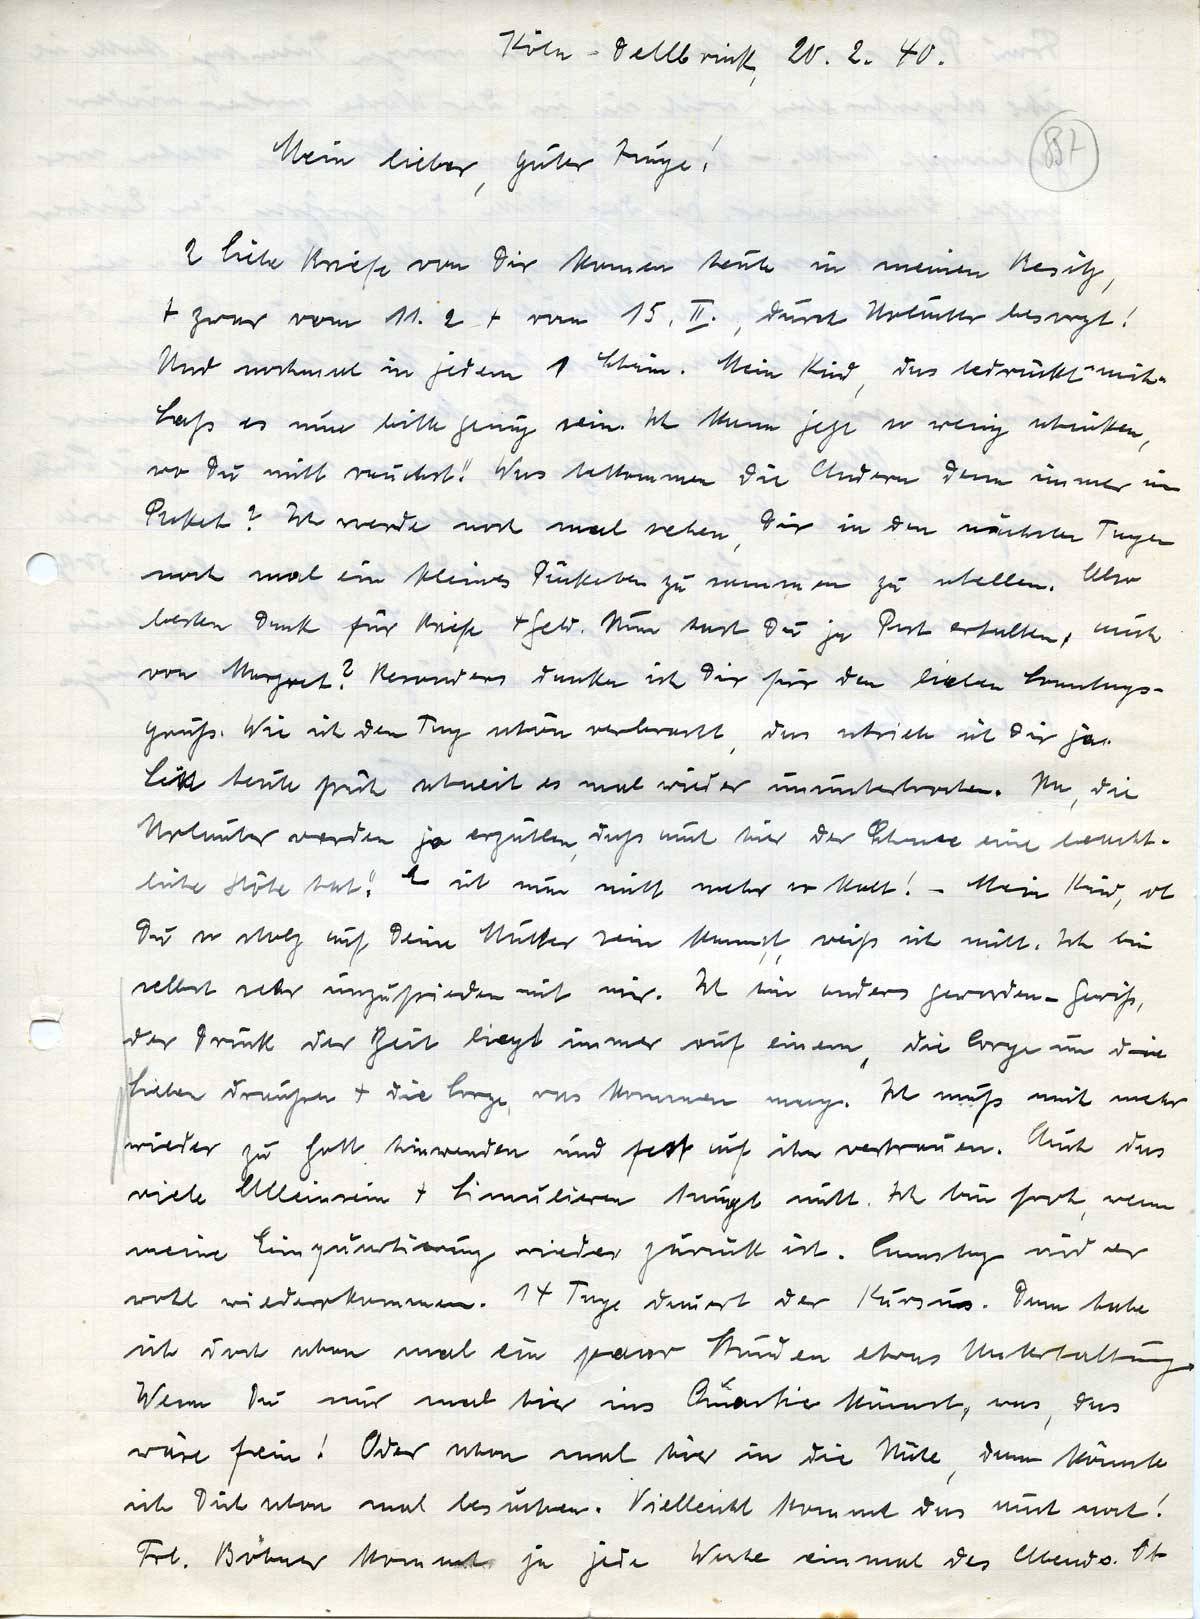 Köln-Dellbrück, 20. 2. 40.
887
Mein lieber, guter Junge!
2 liebe Briefe von Dir kamen heute in meinen Besitz,
+ zwar vom 11. 2 + vom 15. II., durch Urlauber besorgt!
Und nochmal in jedem 1 Schein. Mein Kind, das bedrückt mich.
Laß es nun bitte genug sein. Ich kann jetzt so wenig schicken,
wo Du nicht rauchst!! Was bekommen die Andern denn immer im
Paket? Ich werde noch mal sehen, Dir in den nächsten Tagen
noch mal ein kleines Päckchen zusammen zu stellen. Also
besten Dank für Briefe + Geld. Nun hast Du ja Post erhalten, auch
von Margret? Besonders danke ich Dir für den lieben Sonntags-
gruß. Wie ich den Tag schön verbracht, das schrieb ich Dir ja.
Seit heute früh schneit es mal wieder ununterbrochen. Na, die
Urlauber werden ja erzählen, daß auch hier der Schnee eine beacht-
liche Höhe hat!! Es ist nun nicht mehr so kalt! - Mein Kind, ob
Du so stolz auf Deine Mutter sein kannst, weiß ich nicht. Ich bin
selbst sehr unzufrieden mit mir. Ich bin anders geworden - Gewiß,
der Druck der Zeit liegt immer auf einem, die Sorge um die
Lieben draußen + die Sorge, was kommen mag. Ich muß mich mehr
wieder zu Gott hinwenden und fest auf ihn vertrauen. Auch das
viele Alleinsein + Simulieren taugt nicht. Ich bin froh, wenn
meine Einquartierung wieder zurück ist. Samstag wird er
wohl wiederkommen. 14 Tage dauert der Kursus. Dann habe
ich doch schon mal ein paar Stunden etwas Unterhaltung.
Wenn Du nur mal hier ins Quartier kämst, was, das
wäre fein! Oder schon mal hier in die Nähe, dann könnte
ich Dich schon mal besuchen. Vielleicht kommt das auch noch!
Frl. Böhner kommt ja jede Woche einmal des Abends. Ob